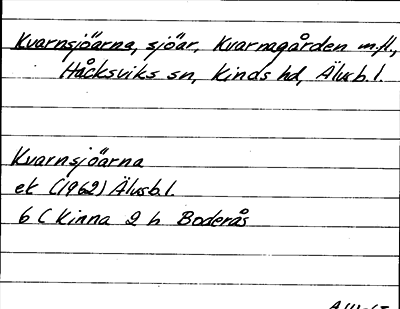 Kvarnsjöarna, sjöar, Kvarnagården m.fl.,
Håcksviks sn, Kinds hd, Älvsb.l.
Kvarnsjöarna
ek (1962) Älvsb.l.
6 C Kinna 2 h Boderås